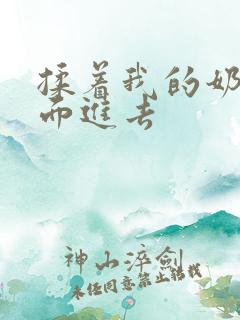 揉着我的奶
而进去
神山淬剑
未经同意禁止转载